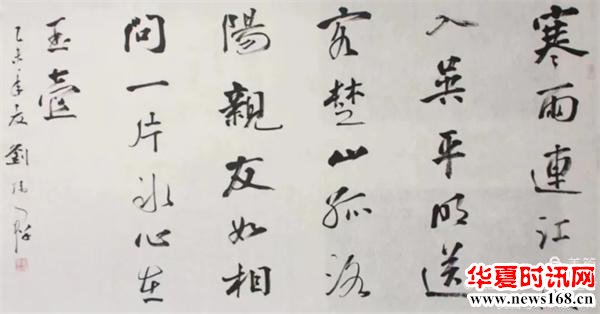 寒雨連江
入吳平明送
客楚山孤洛
陽親友如相
問一片冰心在
玉壺
乙未年夏 劉
华夏时讯网
www.news168.cn